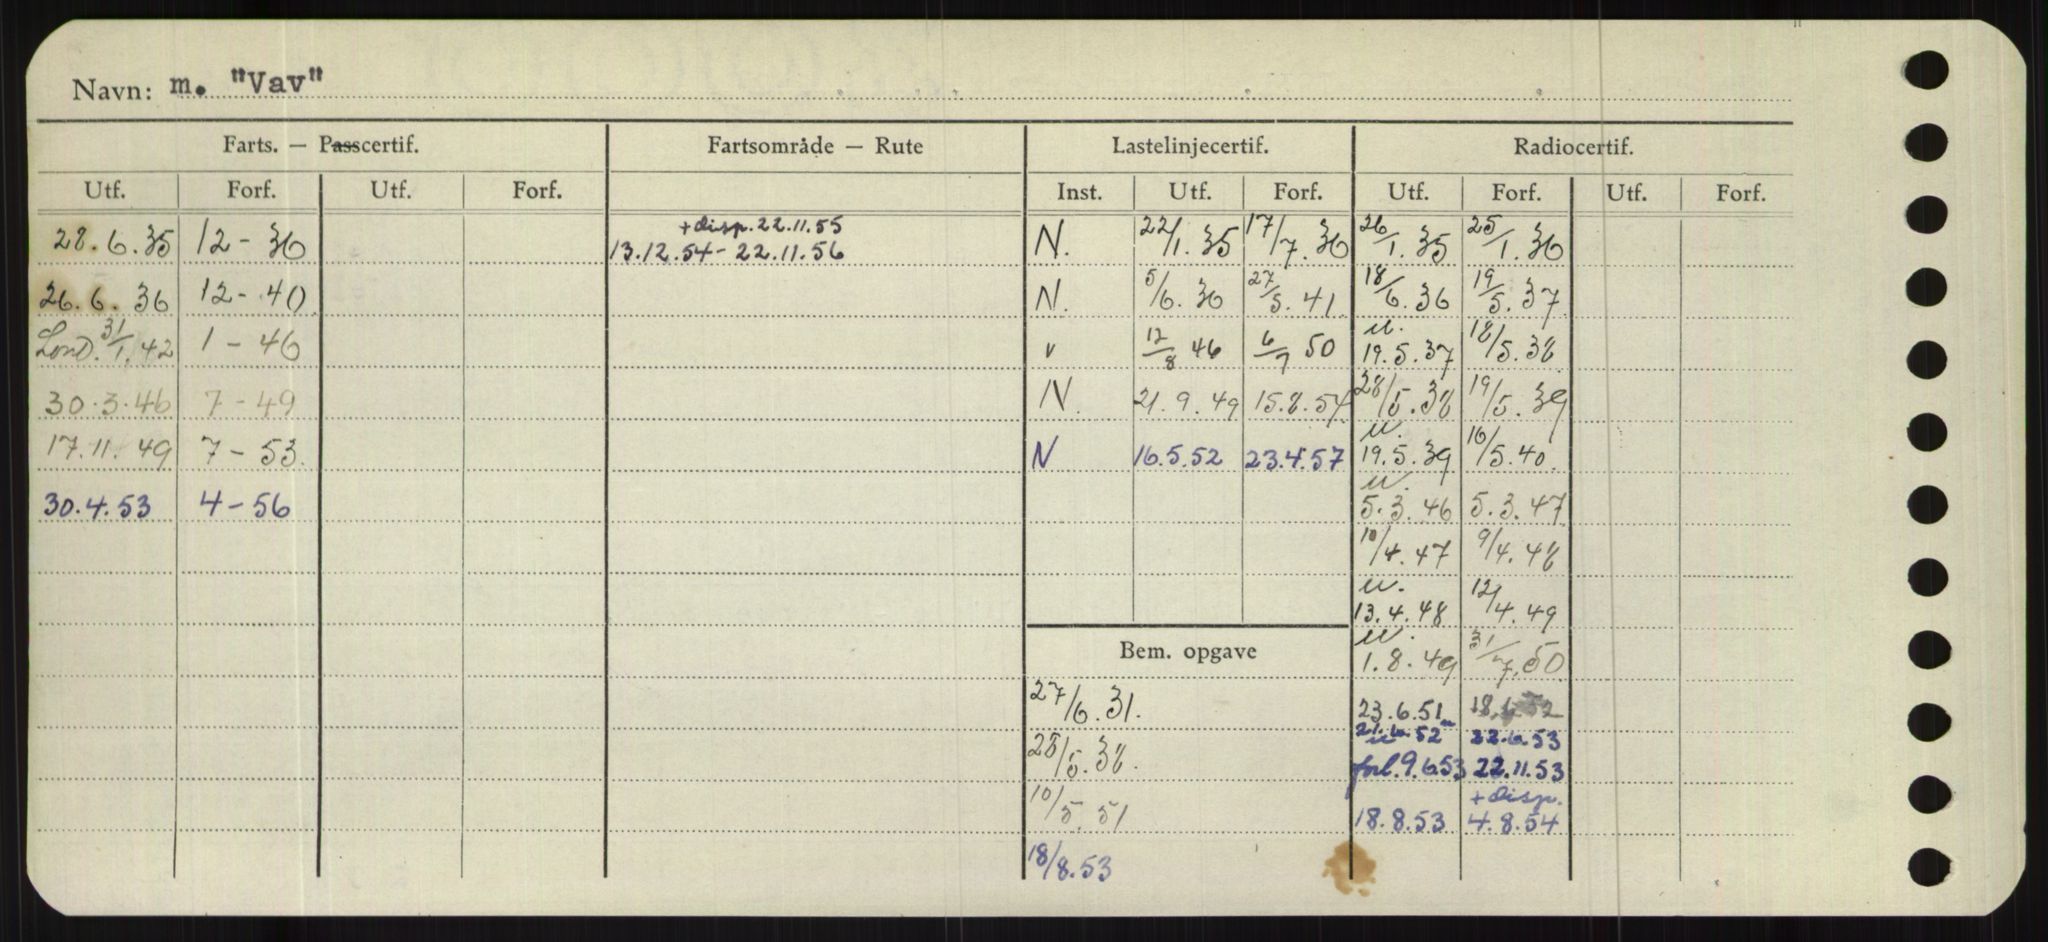 Navn: m. "Vav"
Farts. — Passcertif. Fartsområde — Rute Lastelinjecertif. Radiocertif.
Utf. Forf. Utf. Forf. Inst. Utf. Forf. Utf. Forf. Utf. Forf.
+ disp. 22.11.55
28.6.35 12 - 36 13.12.54 - 22.11.56 N. 22/1.35 17/7.36 26/1.35 25/1.36
26.6.36 12 - 40 N. 5/6.36 27/5.41 18/6.36 19/5.37
Lond. 31/1.42 1 - 46 " 12/8 46 6/7 50 u. 19.5.37 18/5.38
30.3.46 7 - 49 N. 21.9.49 15.8.54 28/5.38 19/5.39
17.11.49 7 - 53. N 16.5.52 23.4.57 u. 19.5.39 16/5.40.
30.4.53 4 - 56 u. 5.3.46 5.3.47
10/4.47 9/4.48
u. 13.4.48 12/4.49
Bem. opgave u. 1.8.49 31/7.50
27/6.31. 23.6.51 18.6.52
u 21.6.52 22.6.53
28/5.38. forl. 9.6.53 22.11.53
+ disp.
10/5.51 18.8.53 4.8.54
18/8.53